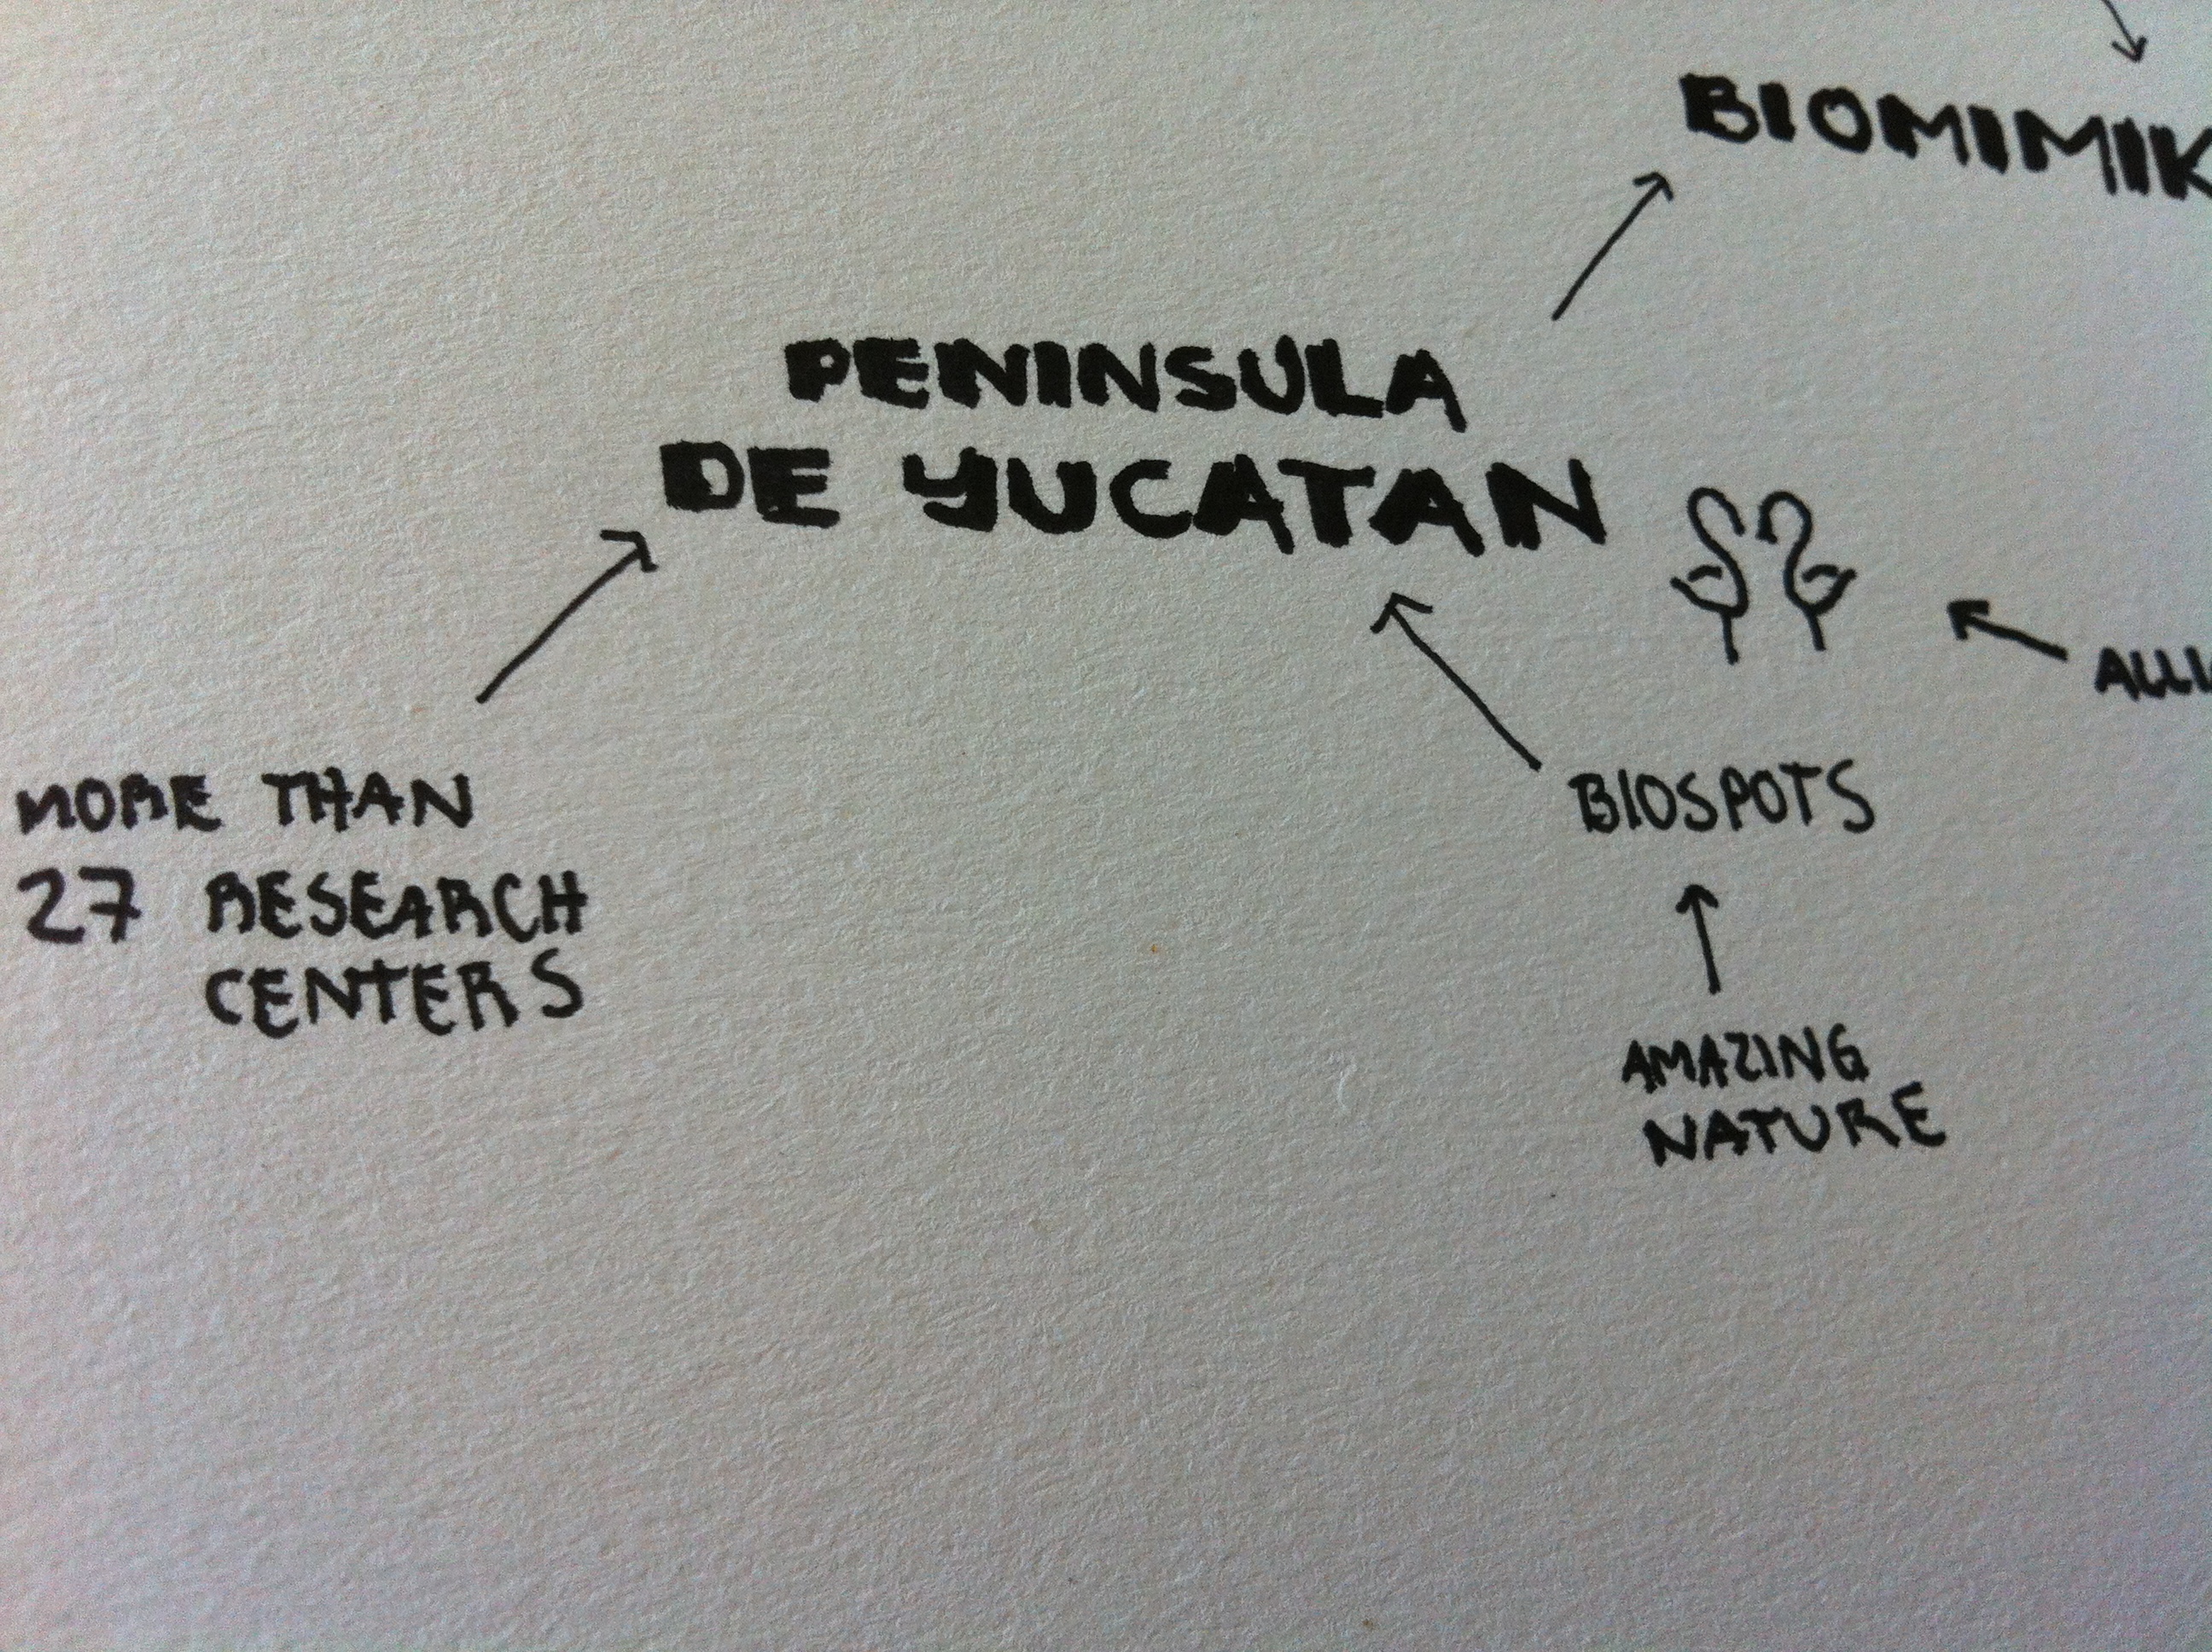 BIOMIMIK
PENINSULA
DE YUCATAN
ALLI
MORE THAN
27 RESEARCH
CENTERS
BIOSPOTS
AMAZING
NATURE